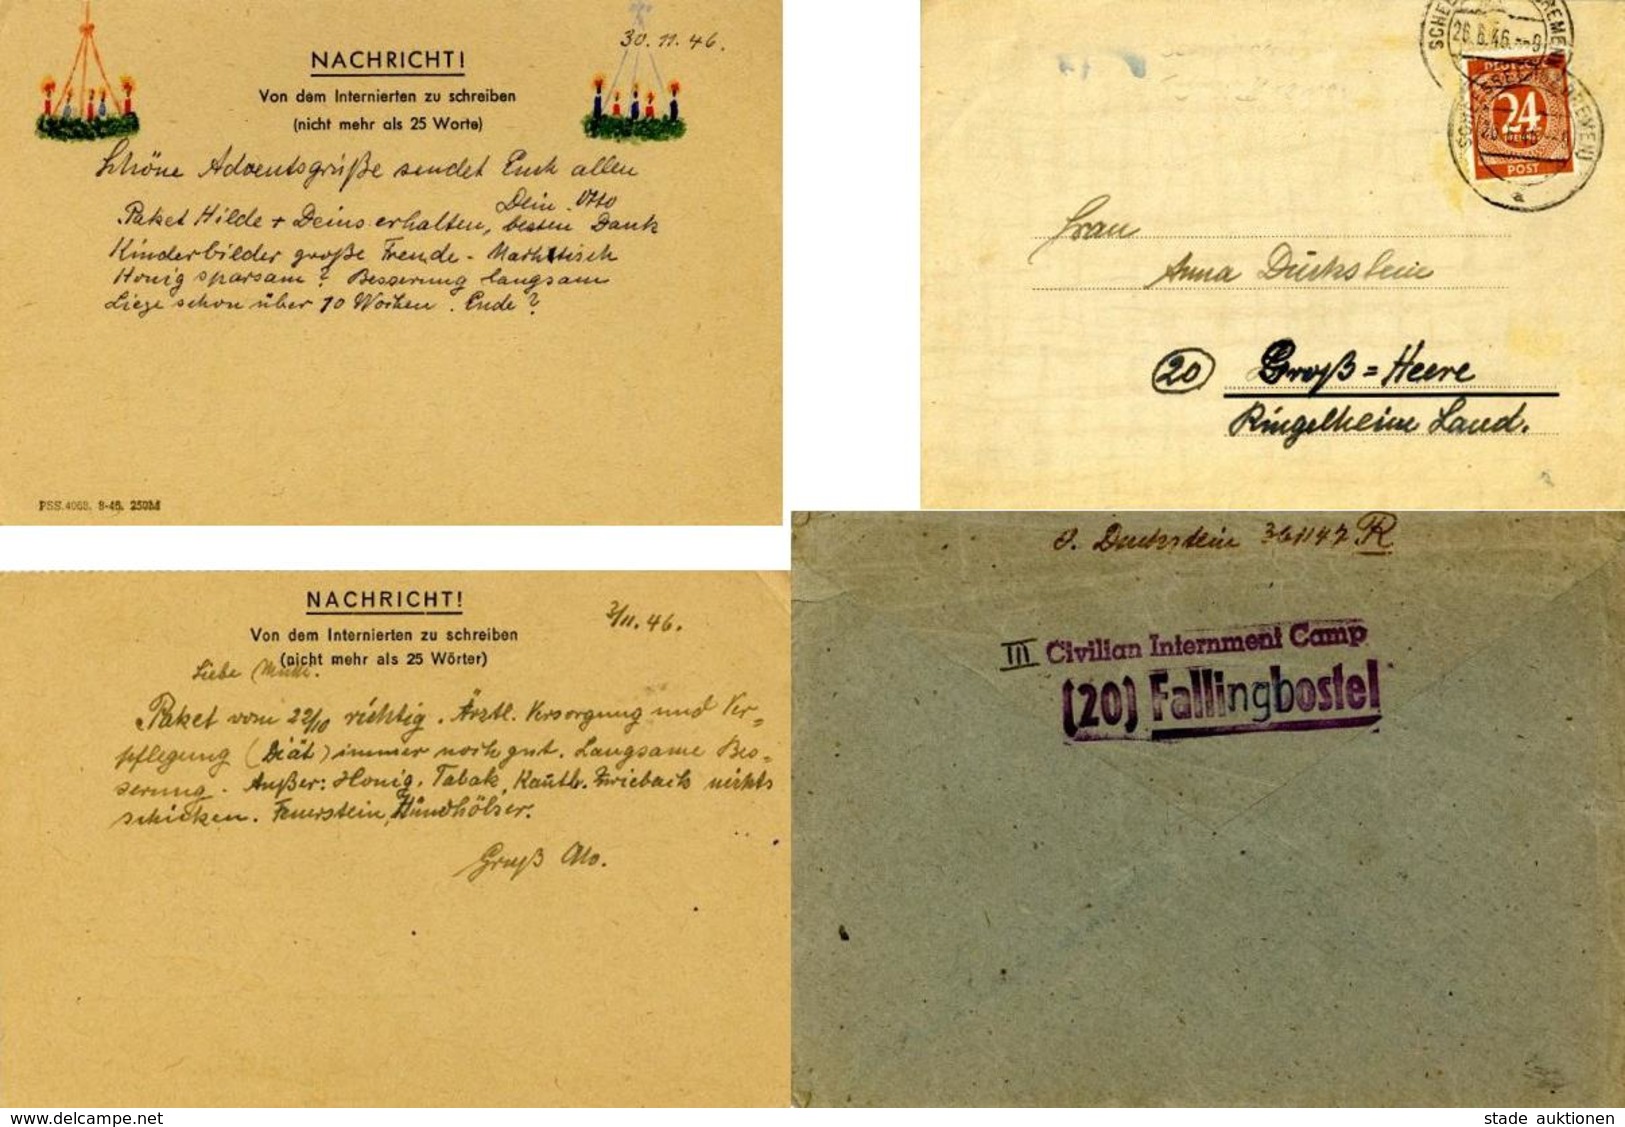 30.11.46.
NACHRICHT!
Von dem Internierten zu schreiben
(nicht mehr als 25 Worte)
Schöne Adventsgrüße sendet Euch allen
Dein Otto
Paket Hilde + Deins erhalten, besten Dank
Kinderbilder große Freude - Nachttisch
Honig sparsam? Besserung langsam
Liege schon über 10 Wochen. Ende?
PSS.4068. 8-46. 250M
SCHEESSEL (BEZ. BREMEN)
26.6.46.--9
DEUTSCHE
24
POST
SCHEESSEL (BEZ. BREMEN)
a
Frau
Anna Duckstein
20 Groß=Heere
Ringelheim Land.
NACHRICHT!
2/11.46.
Von dem Internierten zu schreiben
(nicht mehr als 25 Wörter)
Liebe Mutti.
Paket vom 22/10 richtig. Ärztl. Versorgung und Ver=
pflegung (Diät) immer noch gut. Langsame Bes=
serung. Außer: Honig, Tabak, Kautb. Zwieback nichts
schicken. Feuerstein, Zündhölzer.
Gruß Otto.
O. Duckstein 361147 R
III Civilian Internment Camp
(20) Fallingbostel
www.delcampe.net
stade auktionen